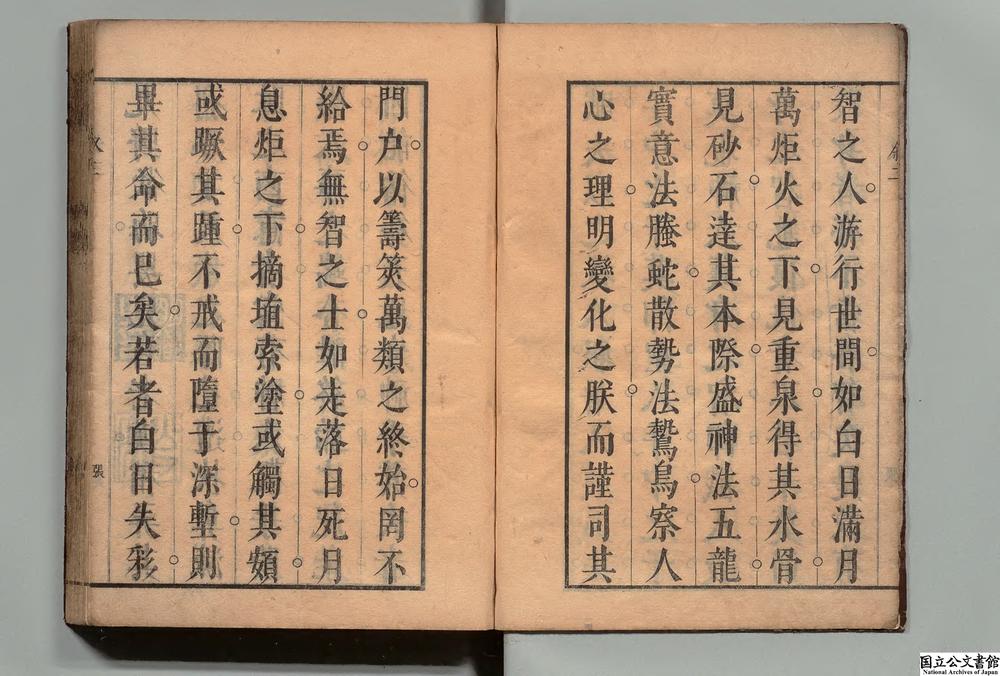 智之人游行世間如白日滿月
萬炬火之下見重泉得其水骨
見砂石達其本際盛神法五龍
實意法螣蛇散勢法鷙鳥察人
心之理明變化之朕而謹司其
門户以籌筴萬類之終始罔不
給焉無智之士如走落日死月
息炬之下摘埴索塗或觸其頞
或蹶其踵不戒而墮于深塹則
畢其命而已矣若者白日失彩
張
国立公文書館
National Archives of Japan